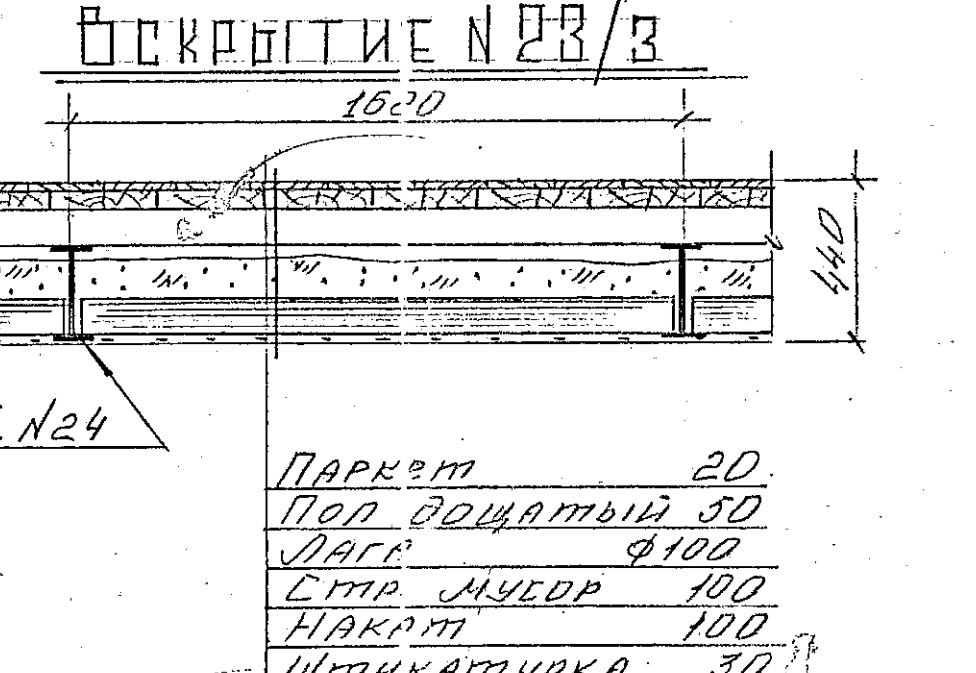 ВСКРЫТИЕ N 23/3
1620
440
N24
ПАРКЕТ 20
ПОЛ ДОЩАТЫЙ 50
ЛАГА ф100
СТР. МУСОР 100
НАКАТ 100
ШТУКАТУРКА 30